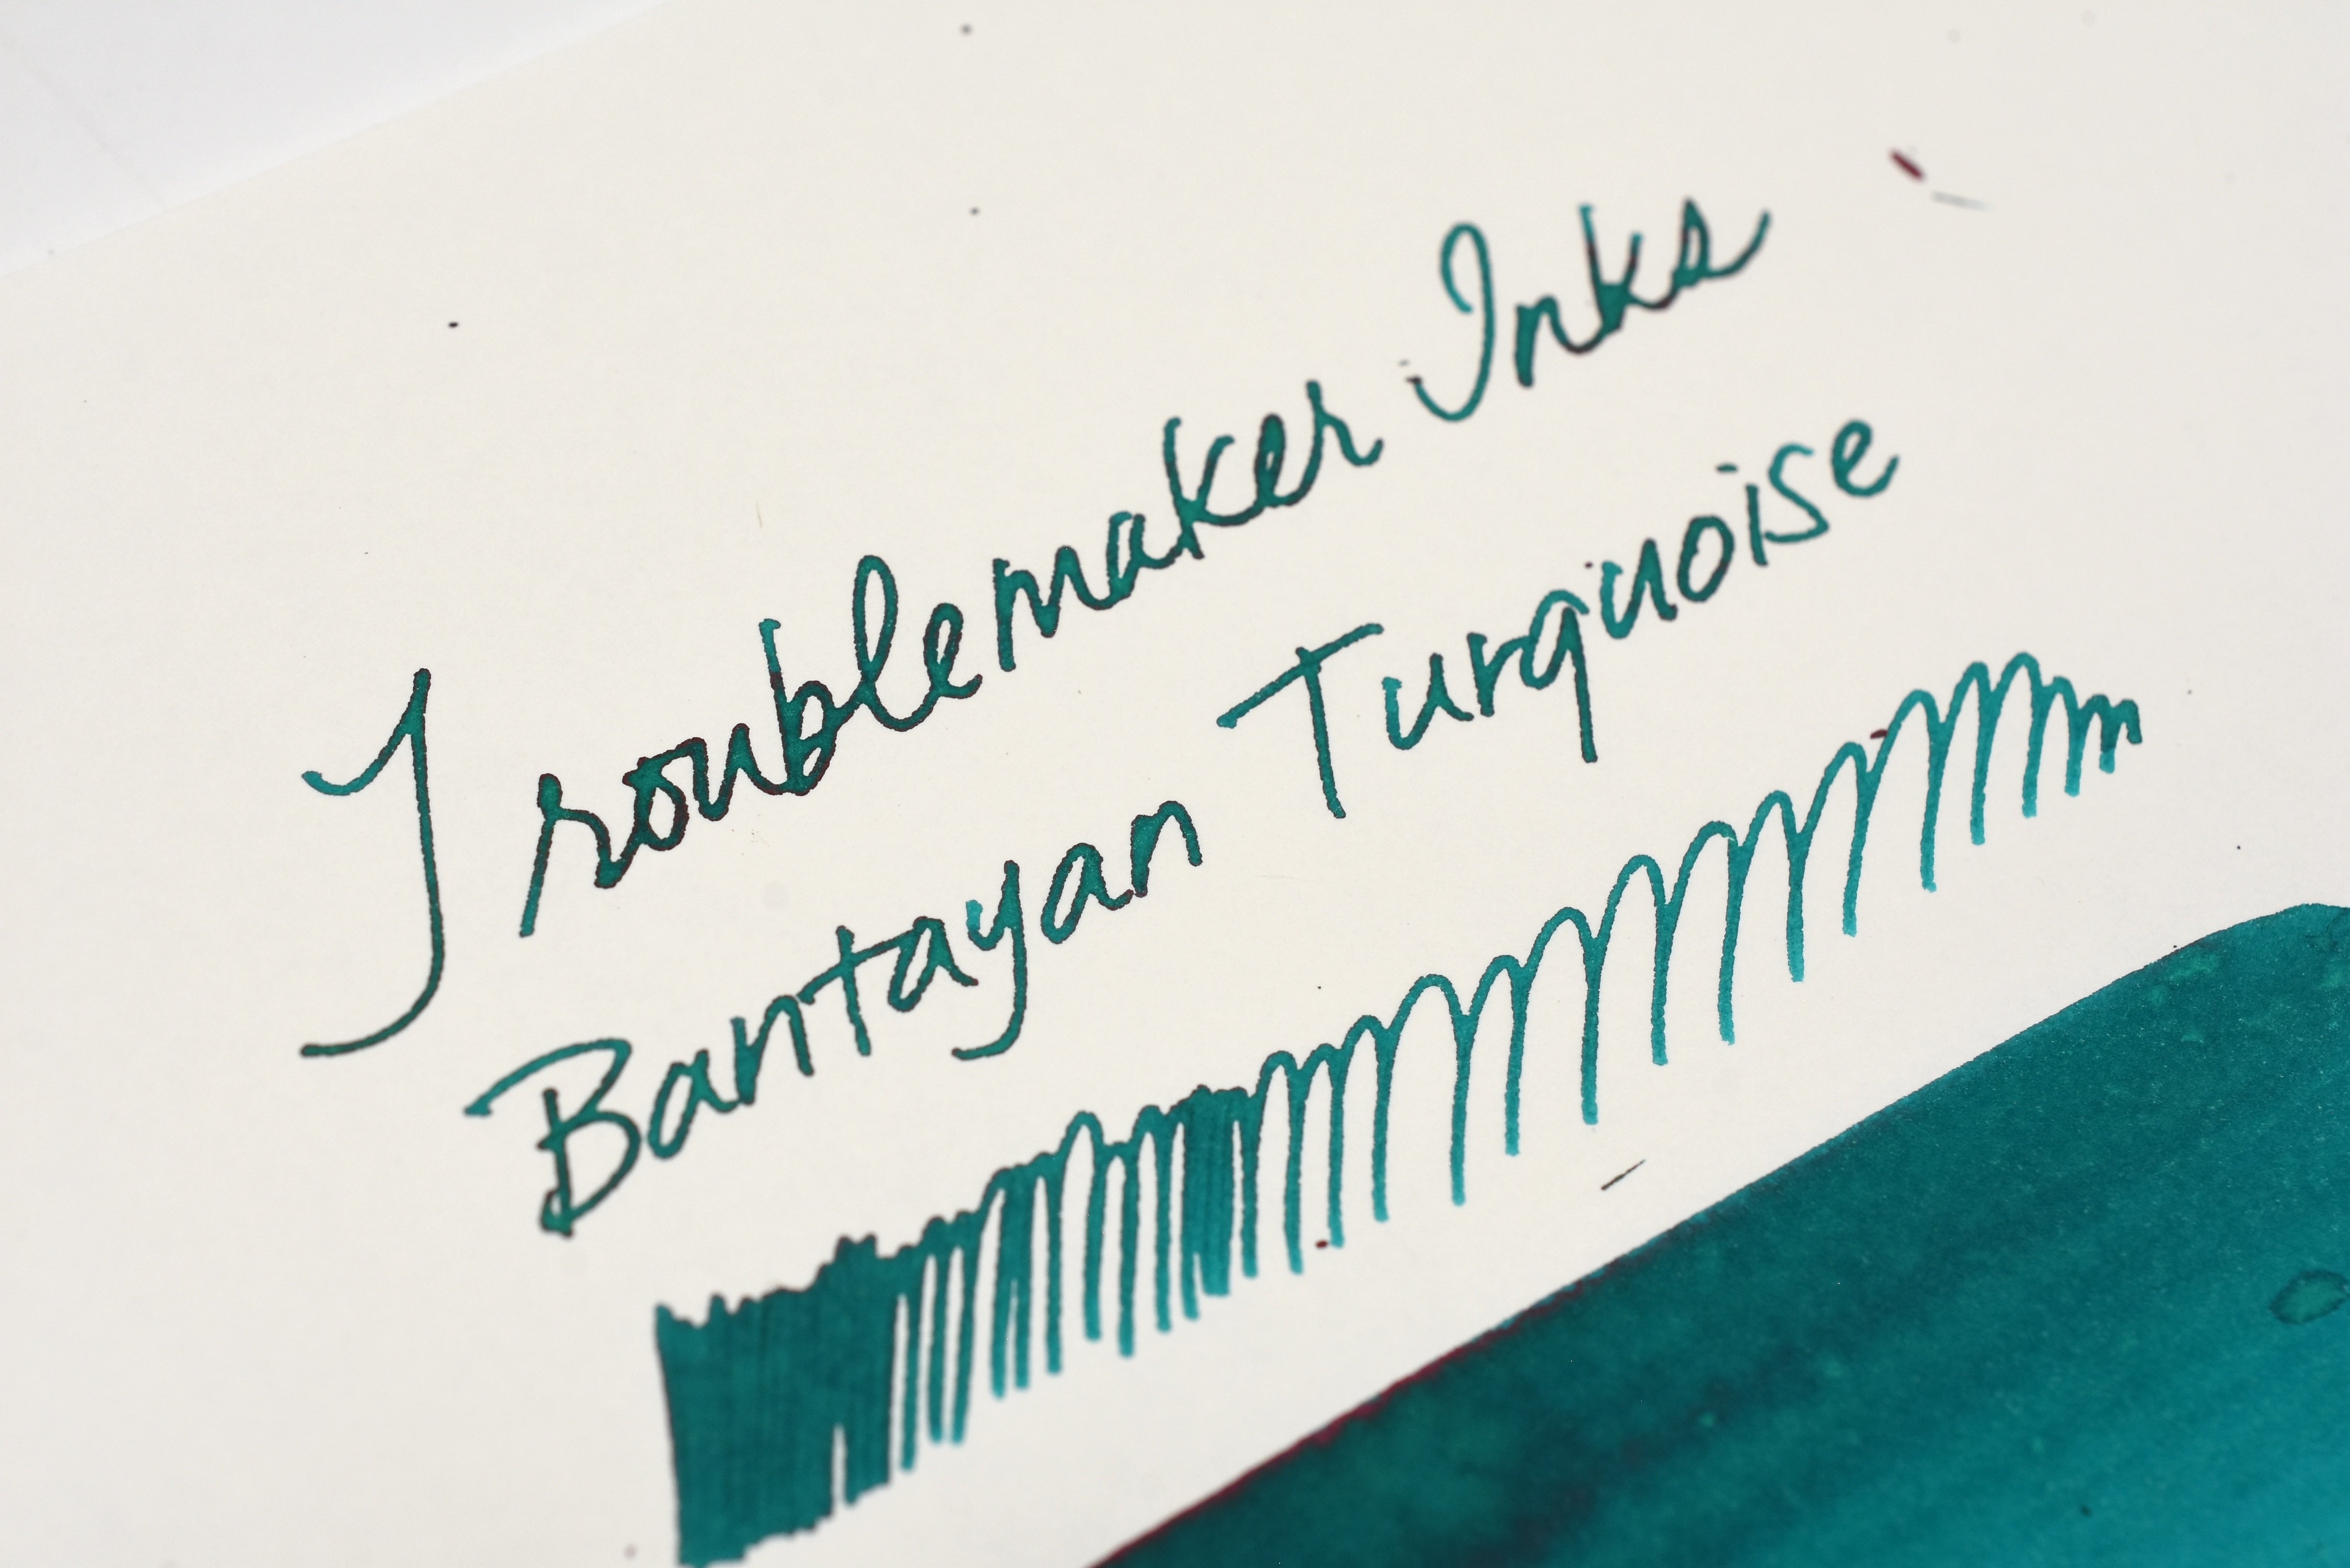 Troublemaker Inks
Bantayan Turquoise